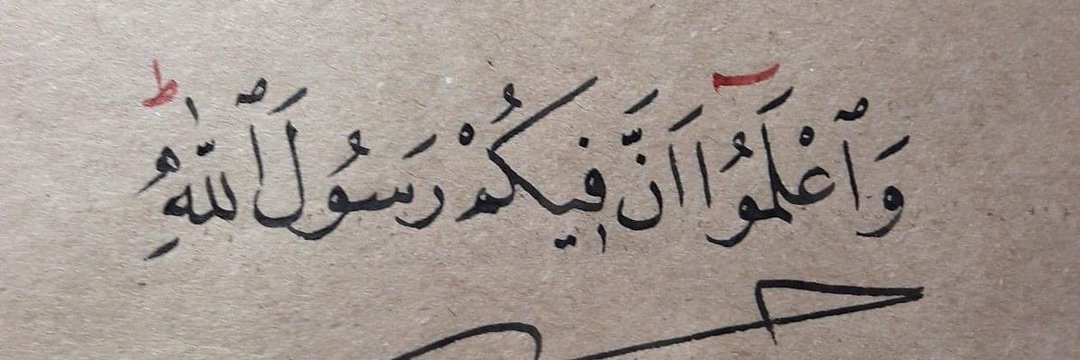 وَٱعْلَمُوٓا اَنَّ فِيكُمْ رَسُولَ ٱللّٰهِؕ